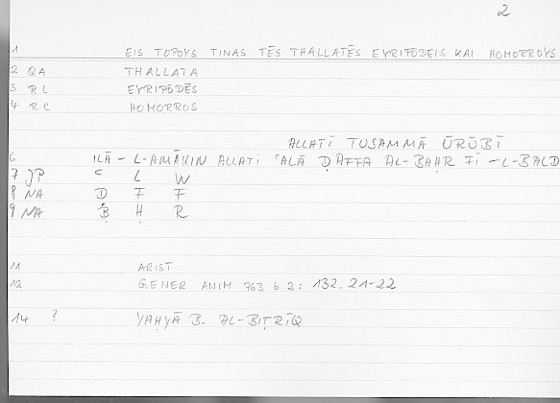 2
1 EIS TOPOYS TINAS TĒS THALLATĒS EYRIPŌDEIS KAI HOMORROYS
2 QA THALLATA
3 RL EYRIPŌDĒS
4 RC HOMORROS
ALLATĪ TUSAMMĀ ŪRŪBĪ
6 ILĀ - L-AMĀKIN ALLATĪ ʿALĀ ḌAFFA AL-BAḤR FĪ -L-BALD
7 JP ʿ L W
8 NA Ḍ F F
9 NA B Ḥ R
11 ARIST
12 GENER ANIM 763 b 2: 132. 21-22
14 ? YAḤYĀ B. AL-BIṬRĪQ